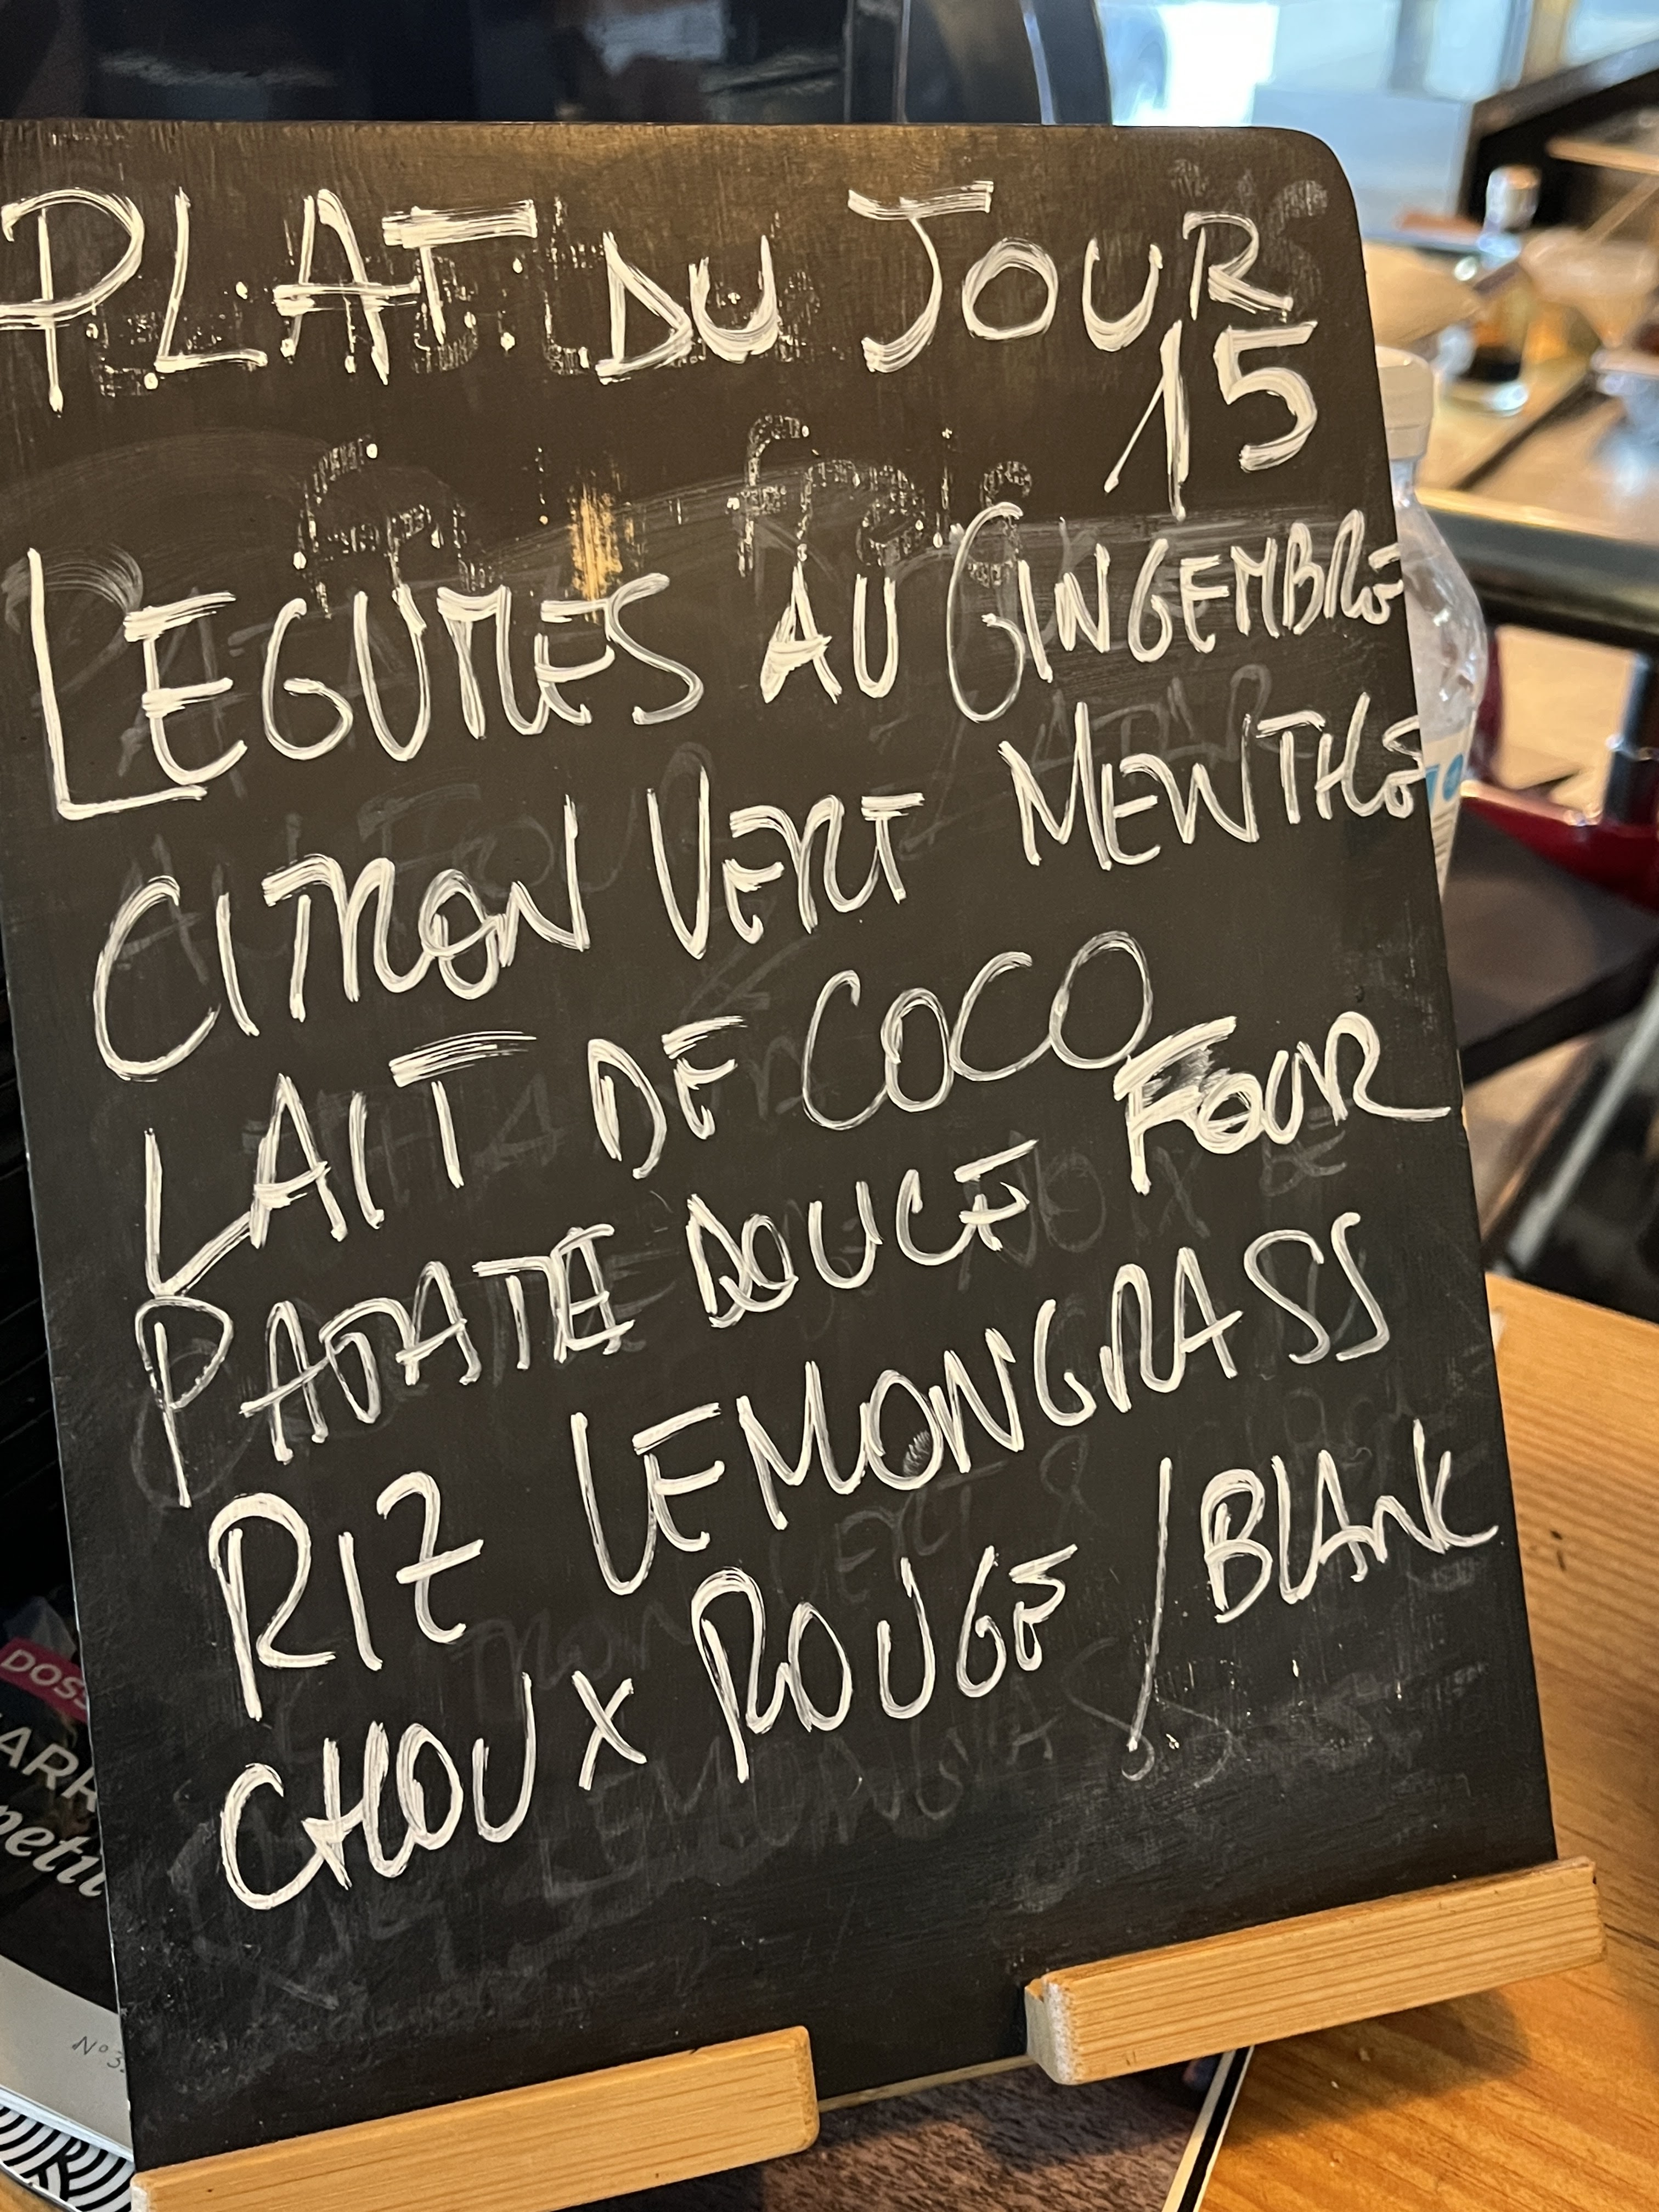 PLAT DU JOUR
15
LEGUMES AU GINGEMBRE
CITRON VERT MENTHE
LAIT DE COCO
PATATE DOUCE FOUR
RIZ LEMONGRASS
CHOUX ROUGE / BLANK
DOSS
ARR
petit
N°3